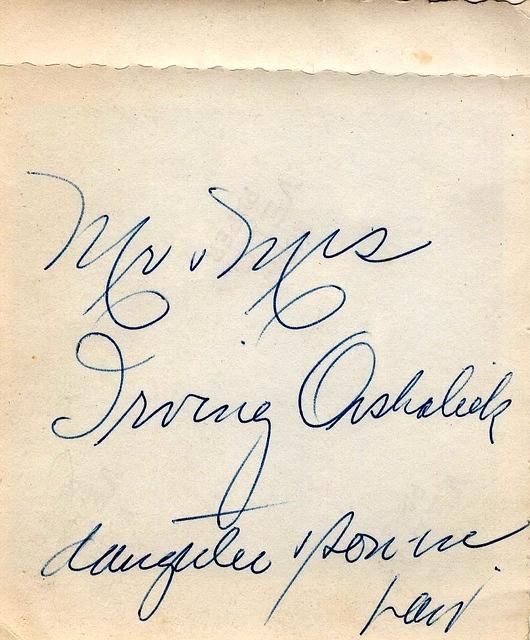 Mr & Mrs
Irving Oshalick
daughter & son-in
law